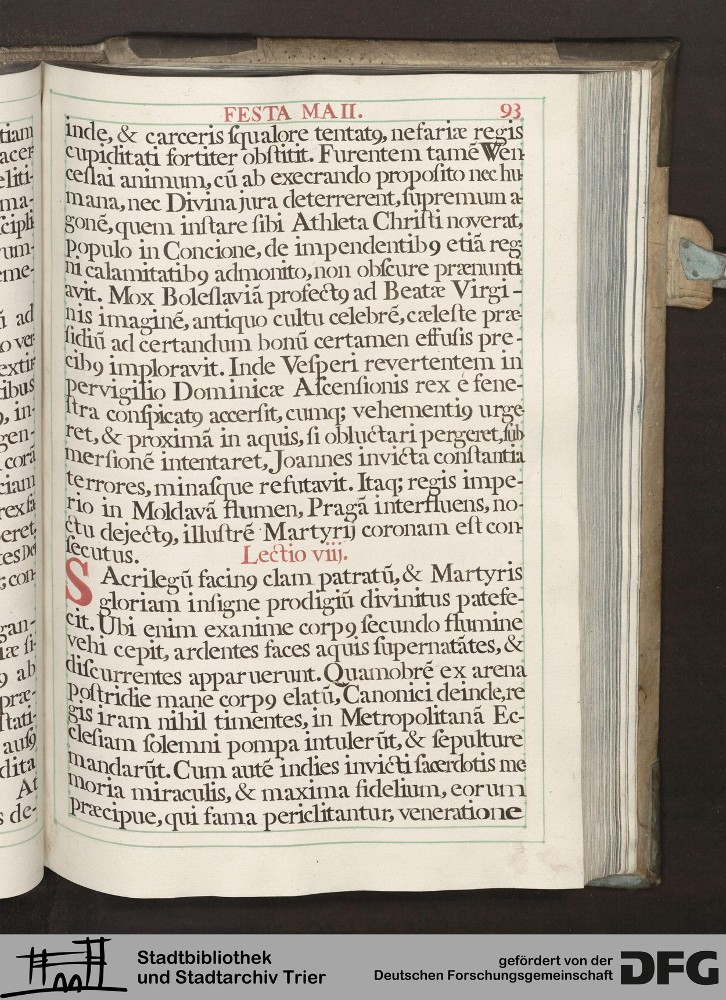 FESTA MAII. 93
inde, & carceris ſqualore tentatꝯ, nefariæ regis
cupiditati fortiter obſtitit. Furentem tamē Wen-
ceſlai animum, cū ab execrando propoſito nec hu
mana, nec Divina jura deterrerent, ſupremum a-
gonē, quem inſtare ſibi Athleta Chriſti noverat,
populo in Concione, de impendentibꝯ etiā reg-
ni calamitatibꝯ admonito, non obſcure prænunti-
avit. Mox Boleſlaviā profectꝯ ad Beatæ Virgi-
nis imaginē, antiquo cultu celebrē, cæleſte præ-
ſidiū ad certandum bonū certamen effuſis pre-
cibꝯ imploravit. Inde Veſperi revertentem in
pervigilio Dominicæ Aſcenſionis rex e fene-
ſtra conſpicatꝯ accerſit, cumq; vehementiꝯ urge
ret, & proximā in aquis, ſi obluctari pergeret, ſub
merſionē intentaret, Joannes invicta conſtantia
terrores, minaſque refutavit. Itaq; regis impe-
rio in Moldavā flumen, Pragā interfluens, no-
ctu dejectꝯ, illuſtrē Martyrij coronam eſt con-
ſecutus. Lectio viij.
SAcrilegū facinꝯ clam patratū, & Martyris
gloriam inſigne prodigiū divinitus patefe-
cit. Ubi enim exanime corpꝯ ſecundo flumine
vehi cepit, ardentes faces aquis ſupernatātes, &
diſcurrentes apparuerunt. Quamobrē ex arena
poſtridie mane corpꝯ elatū, Canonici deinde, re
gis iram nihil timentes, in Metropolitanā Ec-
cleſiam ſolemni pompa intulerūt, & ſepulture
mandarūt. Cum autē indies invicti ſacerdotis me
moria miraculis, & maxima fidelium, eorum
præcipue, qui fama periclitantur, veneratione
tiam
acer
eliti-
ma-
ſcipli
rum-
eme-
ū ad
o ver
extir
ribus
ꝯ, in-
gen-
corā
ciam
rex ſa
eret
tes De
; con-
gan-
iæ ſi-
ꝯ ab
præ-
ſtati-
auſꝯ
dita
At
s de-
Stadtbibliothek
und Stadtarchiv Trier
gefördert von der
Deutschen Forschungsgemeinschaft
DFG